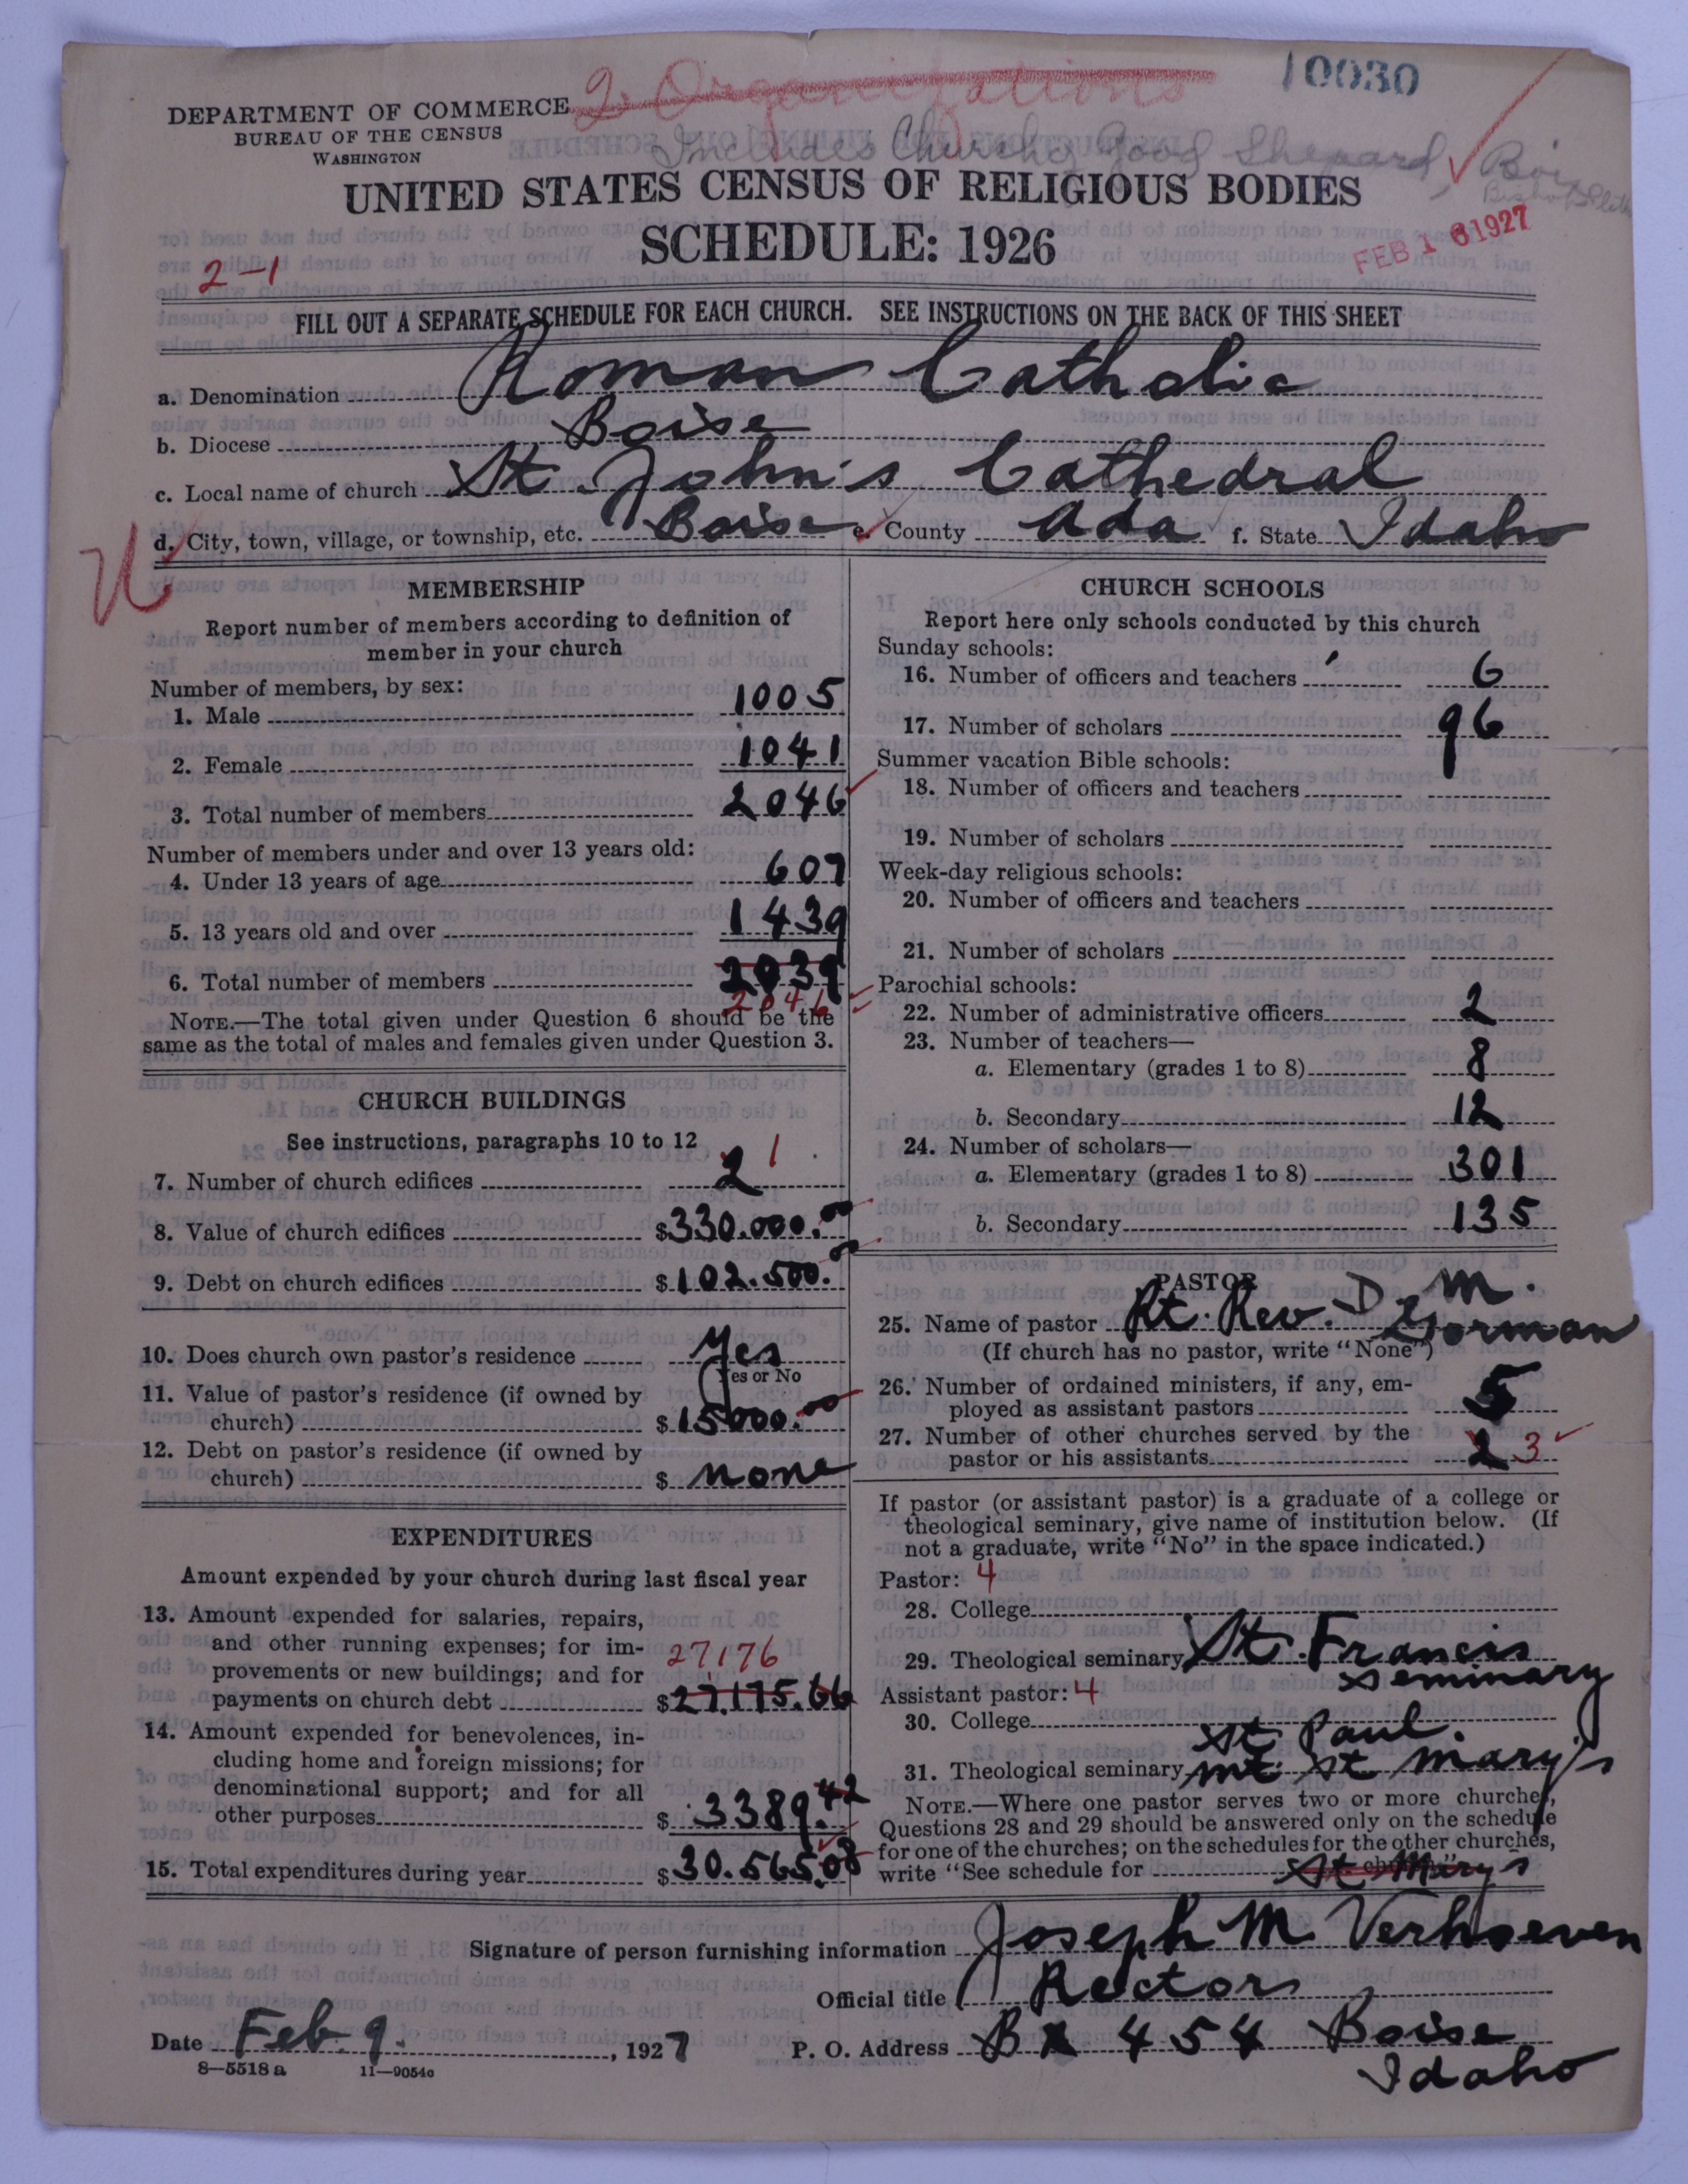 10030
2 Organizations
DEPARTMENT OF COMMERCE
BUREAU OF THE CENSUS
WASHINGTON
Includes Church of Good Shepard, Boise
UNITED STATES CENSUS OF RELIGIOUS BODIES
SCHEDULE: 1926
FEB 16 1927
2-1
FILL OUT A SEPARATE SCHEDULE FOR EACH CHURCH. SEE INSTRUCTIONS ON THE BACK OF THIS SHEET
a. Denomination Roman Catholic
b. Diocese Boise
c. Local name of church St. John's Cathedral
d. City, town, village, or township, etc. Boise e. County Ada f. State Idaho
MEMBERSHIP
Report number of members according to definition of
member in your church
Number of members, by sex:
1. Male 1005
2. Female 1041
3. Total number of members 2046
Number of members under and over 13 years old:
4. Under 13 years of age 607
5. 13 years old and over 1439
6. Total number of members 2039
2046
NOTE.—The total given under Question 6 should be the
same as the total of males and females given under Question 3.
CHURCH BUILDINGS
See instructions, paragraphs 10 to 12
7. Number of church edifices 2 1
8. Value of church edifices $330.000.00
9. Debt on church edifices $102.500.00
10. Does church own pastor's residence Yes
Yes or No
11. Value of pastor's residence (if owned by
church) $15000.00
12. Debt on pastor's residence (if owned by
church) $ none
EXPENDITURES
Amount expended by your church during last fiscal year
13. Amount expended for salaries, repairs,
and other running expenses; for im-
27176
provements or new buildings; and for
payments on church debt $27.175.66
14. Amount expended for benevolences, in-
cluding home and foreign missions; for
denominational support; and for all
other purposes $3389.42
15. Total expenditures during year $30.565.08
CHURCH SCHOOLS
Report here only schools conducted by this church
Sunday schools:
16. Number of officers and teachers 6
17. Number of scholars 96
Summer vacation Bible schools:
18. Number of officers and teachers
19. Number of scholars
Week-day religious schools:
20. Number of officers and teachers
21. Number of scholars
Parochial schools:
22. Number of administrative officers 2
23. Number of teachers—
a. Elementary (grades 1 to 8) 8
b. Secondary 12
24. Number of scholars—
a. Elementary (grades 1 to 8) 301
b. Secondary 135
PASTOR
25. Name of pastor Rt. Rev. D. M. Gorman
(If church has no pastor, write "None")
26. Number of ordained ministers, if any, em-
ployed as assistant pastors 5
27. Number of other churches served by the
pastor or his assistants 2 3
If pastor (or assistant pastor) is a graduate of a college or
theological seminary, give name of institution below. (If
not a graduate, write "No" in the space indicated.)
Pastor: 4
28. College
29. Theological seminary St. Francis
Seminary
Assistant pastor: 4
30. College
St Paul.
31. Theological seminary Mt. St Mary's
NOTE.—Where one pastor serves two or more churches,
Questions 28 and 29 should be answered only on the schedule
for one of the churches; on the schedules for the other churches,
write "See schedule for St Mary's church."
Signature of person furnishing information Joseph M Verhoeven
Official title Rector
Date Feb 9. , 1927
P. O. Address Bx 454 Boise
Idaho
8—5518 a 11—9054c